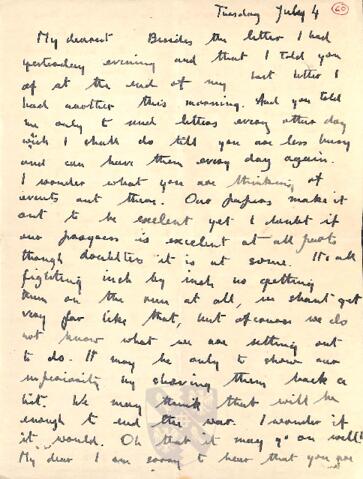 Tuesday July 4
60
My dearest Besides the letter I had
yesterday evening and that I told you
of at the end of my last letter I
had another this morning. And you told
me only to send letters every other day
wich I shall do till you are less busy
and can have them every day again.
I wonder what you are thinking of
events out there. Our papers make it
out to be excelent yet I doubt if
our progress is excelent at all parts
though doubtless it is at some. It's all
fighting inch by inch no getting
them on the run at all, we shant get
very far like that, but of course we do
not know what we are setting out
to do. It may be only to show our
superiority by shoving them back a
bit. We may think that will be
enough to end the war. I wonder if
it would. Oh that it may go on well!
My dear I am sorry to hear that you are